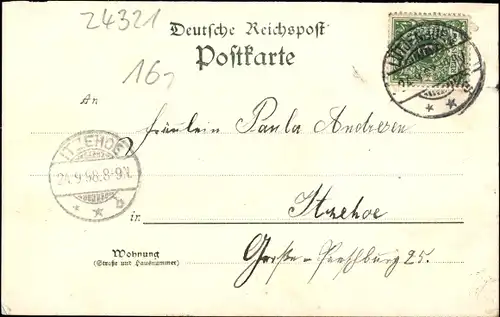 24321
Deutsche Reichspost
Postkarte
16,
An
Fräulein Paula Andresen
ITZEHOE
24.9.98.8-9N.
in
Itzehoe
Wohnung
(Straße und Hausnummer)
Große 25.